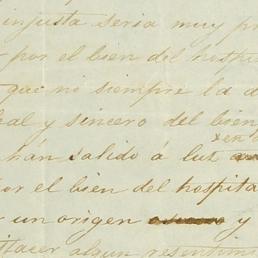 injusta seria muy pr
por el bien del hospi
que no siempre la a
eal y sincero del bien
en
han salido á luz
or el bien del hospita
r un origen oscuro y
tifacer algun resentimi